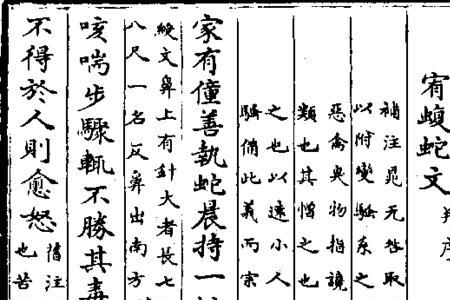 宥蝮蛇文并序
補注晁元咎取
以附變騷系之
惡禽臭物指讒
類也其憎之也
之也以遠小人
騷備此義而宗
家有僮善執蛇晨持一
綬文鼻上有針大者長七
八尺一名反鼻出南方
咳喘步驟輒不勝其毒
不得於人則愈怒
舊注
也苦